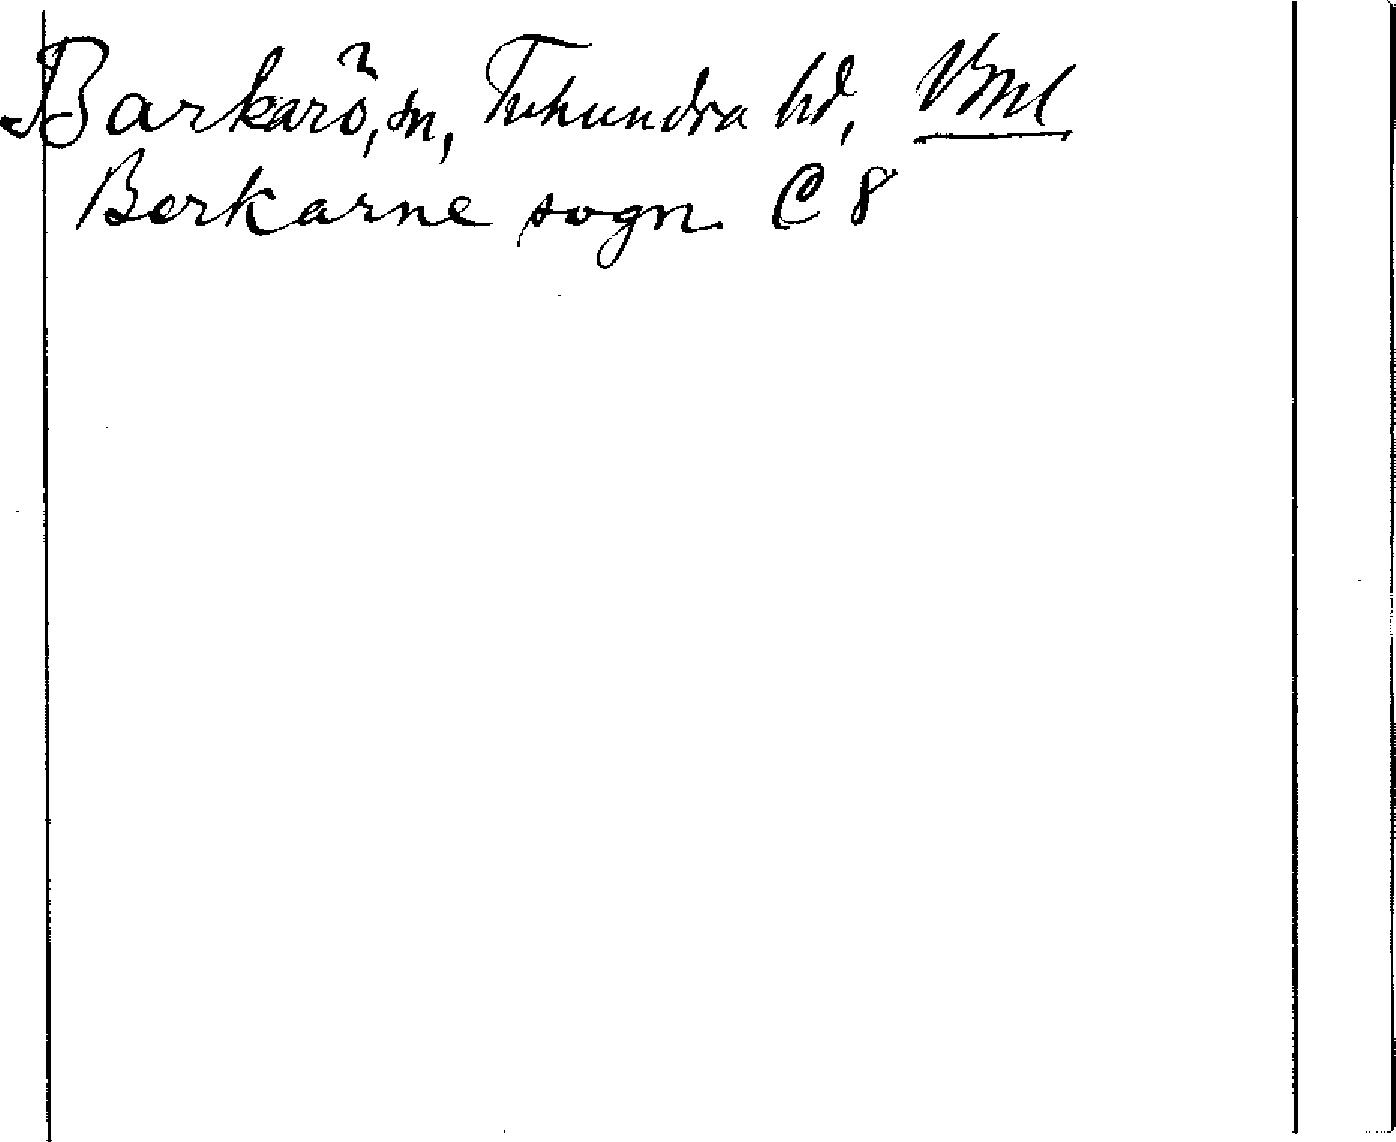 Barkarö, sn, Tuhundra hd, Vml
Berkarne sogn. C 8